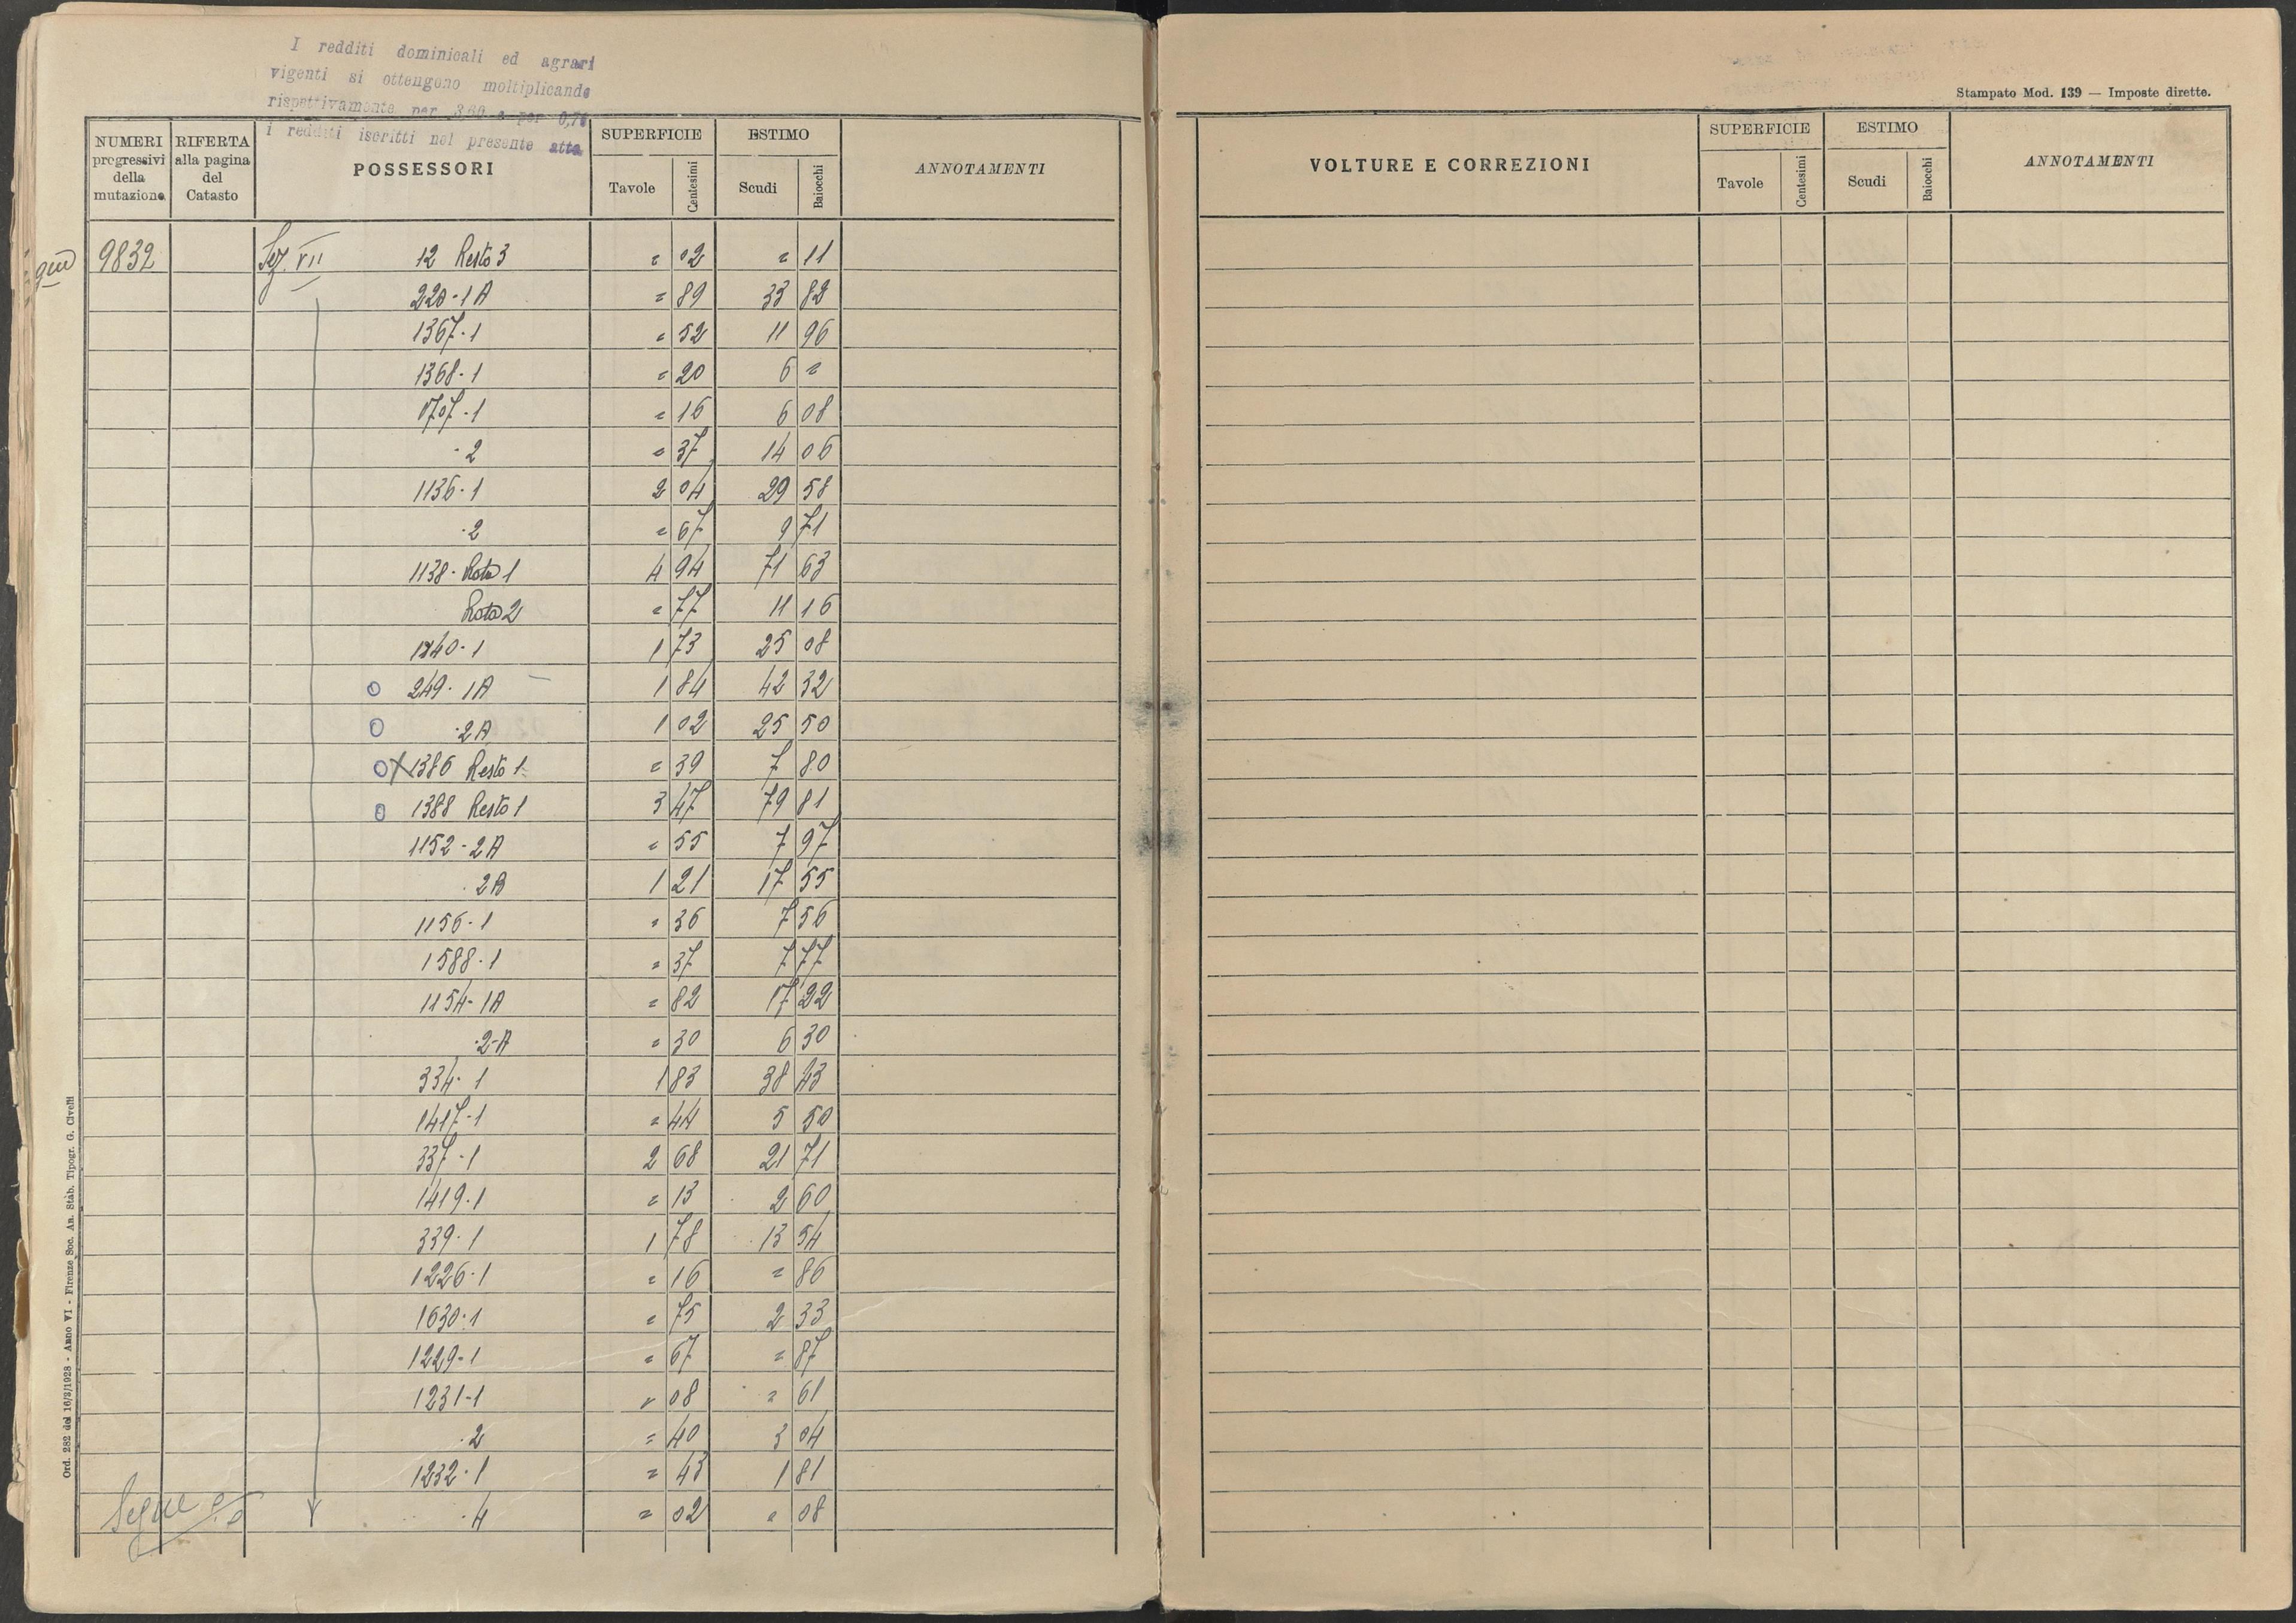 I redditi dominicali ed agrari
vigenti si ottengono moltiplicando
rispettivamente per 3,60 e per 0,74
i redditi iscritti nel presente atto
Stampato Mod. 139 — Imposte dirette.
NUMERI progressivi della mutazione RIFERTA alla pagina del Catasto POSSESSORI SUPERFICIE Tavole Centesimi ESTIMO Scudi Baiocchi ANNOTAMENTI
VOLTURE E CORREZIONI SUPERFICIE Tavole Centesimi ESTIMO Scudi Baiocchi ANNOTAMENTI
9832 Sez. VII 12 Resto 3 = 02 = 11
220-1A = 89 33 82
1367-1 = 52 11 96
1368-1 = 20 6 =
-1 = 16 6 08
-2 = 37 14 06
1136-1 2 04 29 58
-2 = 67 9 71
1138- Resto 1 4 94 71 63
Resto 2 = 77 11 16
1140-1 1 73 25 08
O 249-1A 1 84 42 32
O -2A 1 02 25 50
O X 1386 Resto 1 = 39 7 80
O 1388 Resto 1 3 47 79 81
1152-2A = 55 7 97
2B 1 21 17 55
1156-1 = 36 7 56
1588-1 = 37 7 77
1154-1A = 82 17 22
-2-A = 30 6 30
334-1 1 83 38 43
1417-1 = 44 5 50
337-1 2 68 21 71
1419-1 = 13 2 60
339-1 1 78 13 54
1226-1 = 16 = 86
1630-1 = 75 2 33
1229-1 = 67 = 87
1231-1 = 08 = 61
-2 = 40 3 04
1232-1 = 43 1 81
-4 = 02 = 08
Segue
Ord. 282 del 16/3/1928 - Anno VI - Firenze Soc. An. Stab. Tipogr. G. Civelli